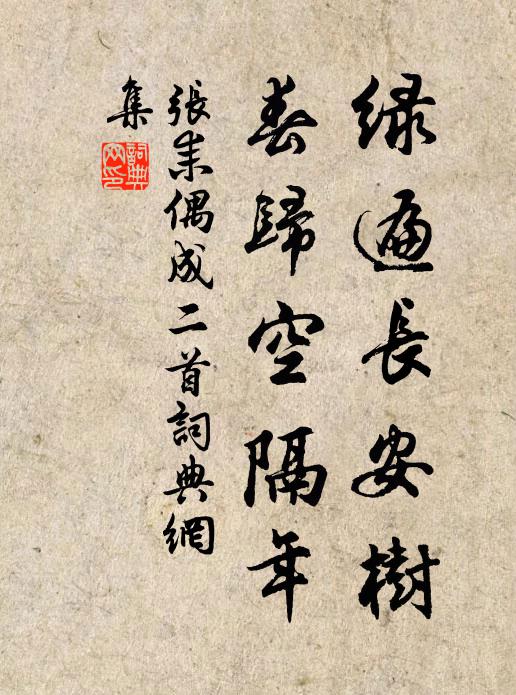 绿遍長安樹
春歸空隔年
張耒偶成二首詞典網
集
詞典網印